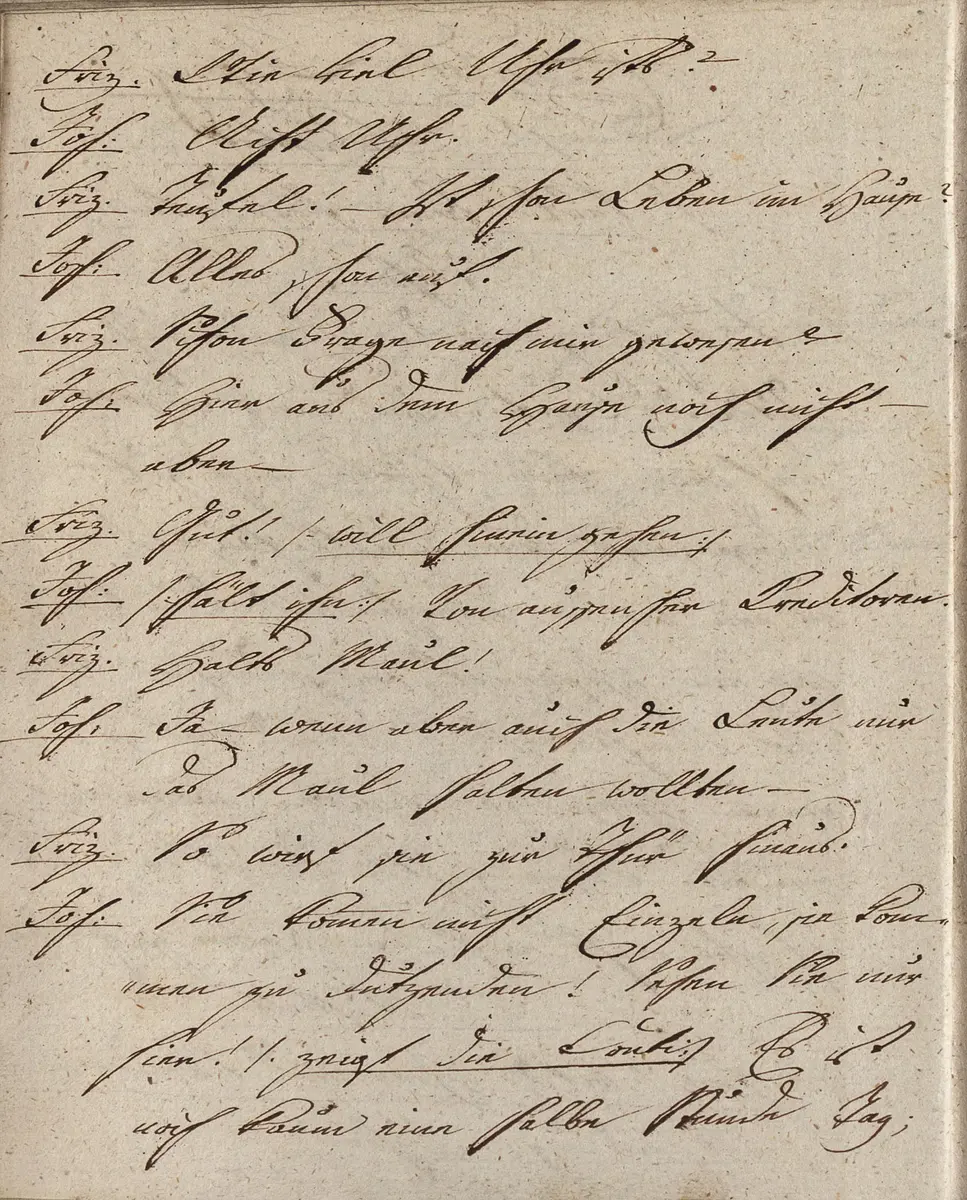 Friz. Wie viel Uhr ists?
Joh: Acht Uhr.
Friz. Teufel! – Ist schon Leben im Hause?
Joh: Alles schon auf.
Friz. Schon Frage nach mir gewesen?
Joh: Hier aus dem Hause noch nicht –
aber –
Friz. Gut! /: will hinein gehen :/
Joh: /: hält ihn :/ Von aussen her Creditoren.
Friz. Halts Maul!
Joh: Ja – wenn aber auch die Leute nur
das Maul halten wollten –
Friz. So wirf sie zur Thür hinaus.
Joh: Sie kom̄en nicht Einzeln, sie kom=
=men zu Dutzenden! Sehen Sie nur
hier! /: zeigt die Conti :/ Es ist
noch kaum eine halbe Stunde Tag;